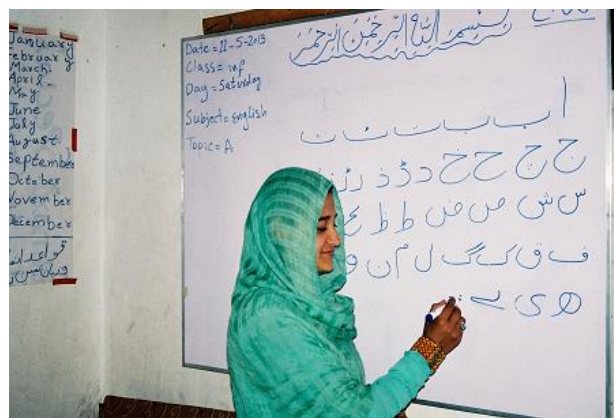 January
ebruary
March-
April-
May
June
July
August
Septembe
October
November
December
قواعد
Date = 11-5-2013
Class = inf
Day = Saturday
Subject = English
Topic = A
بسم اللہ الرحمن الرحیم
ا ب پ ت ٹ ث
ج چ ح خ د ڈ ذ ر ڑ
س ش ص ض ط ظ ع
ف ق ک گ ل م ن و
ھ ی ے